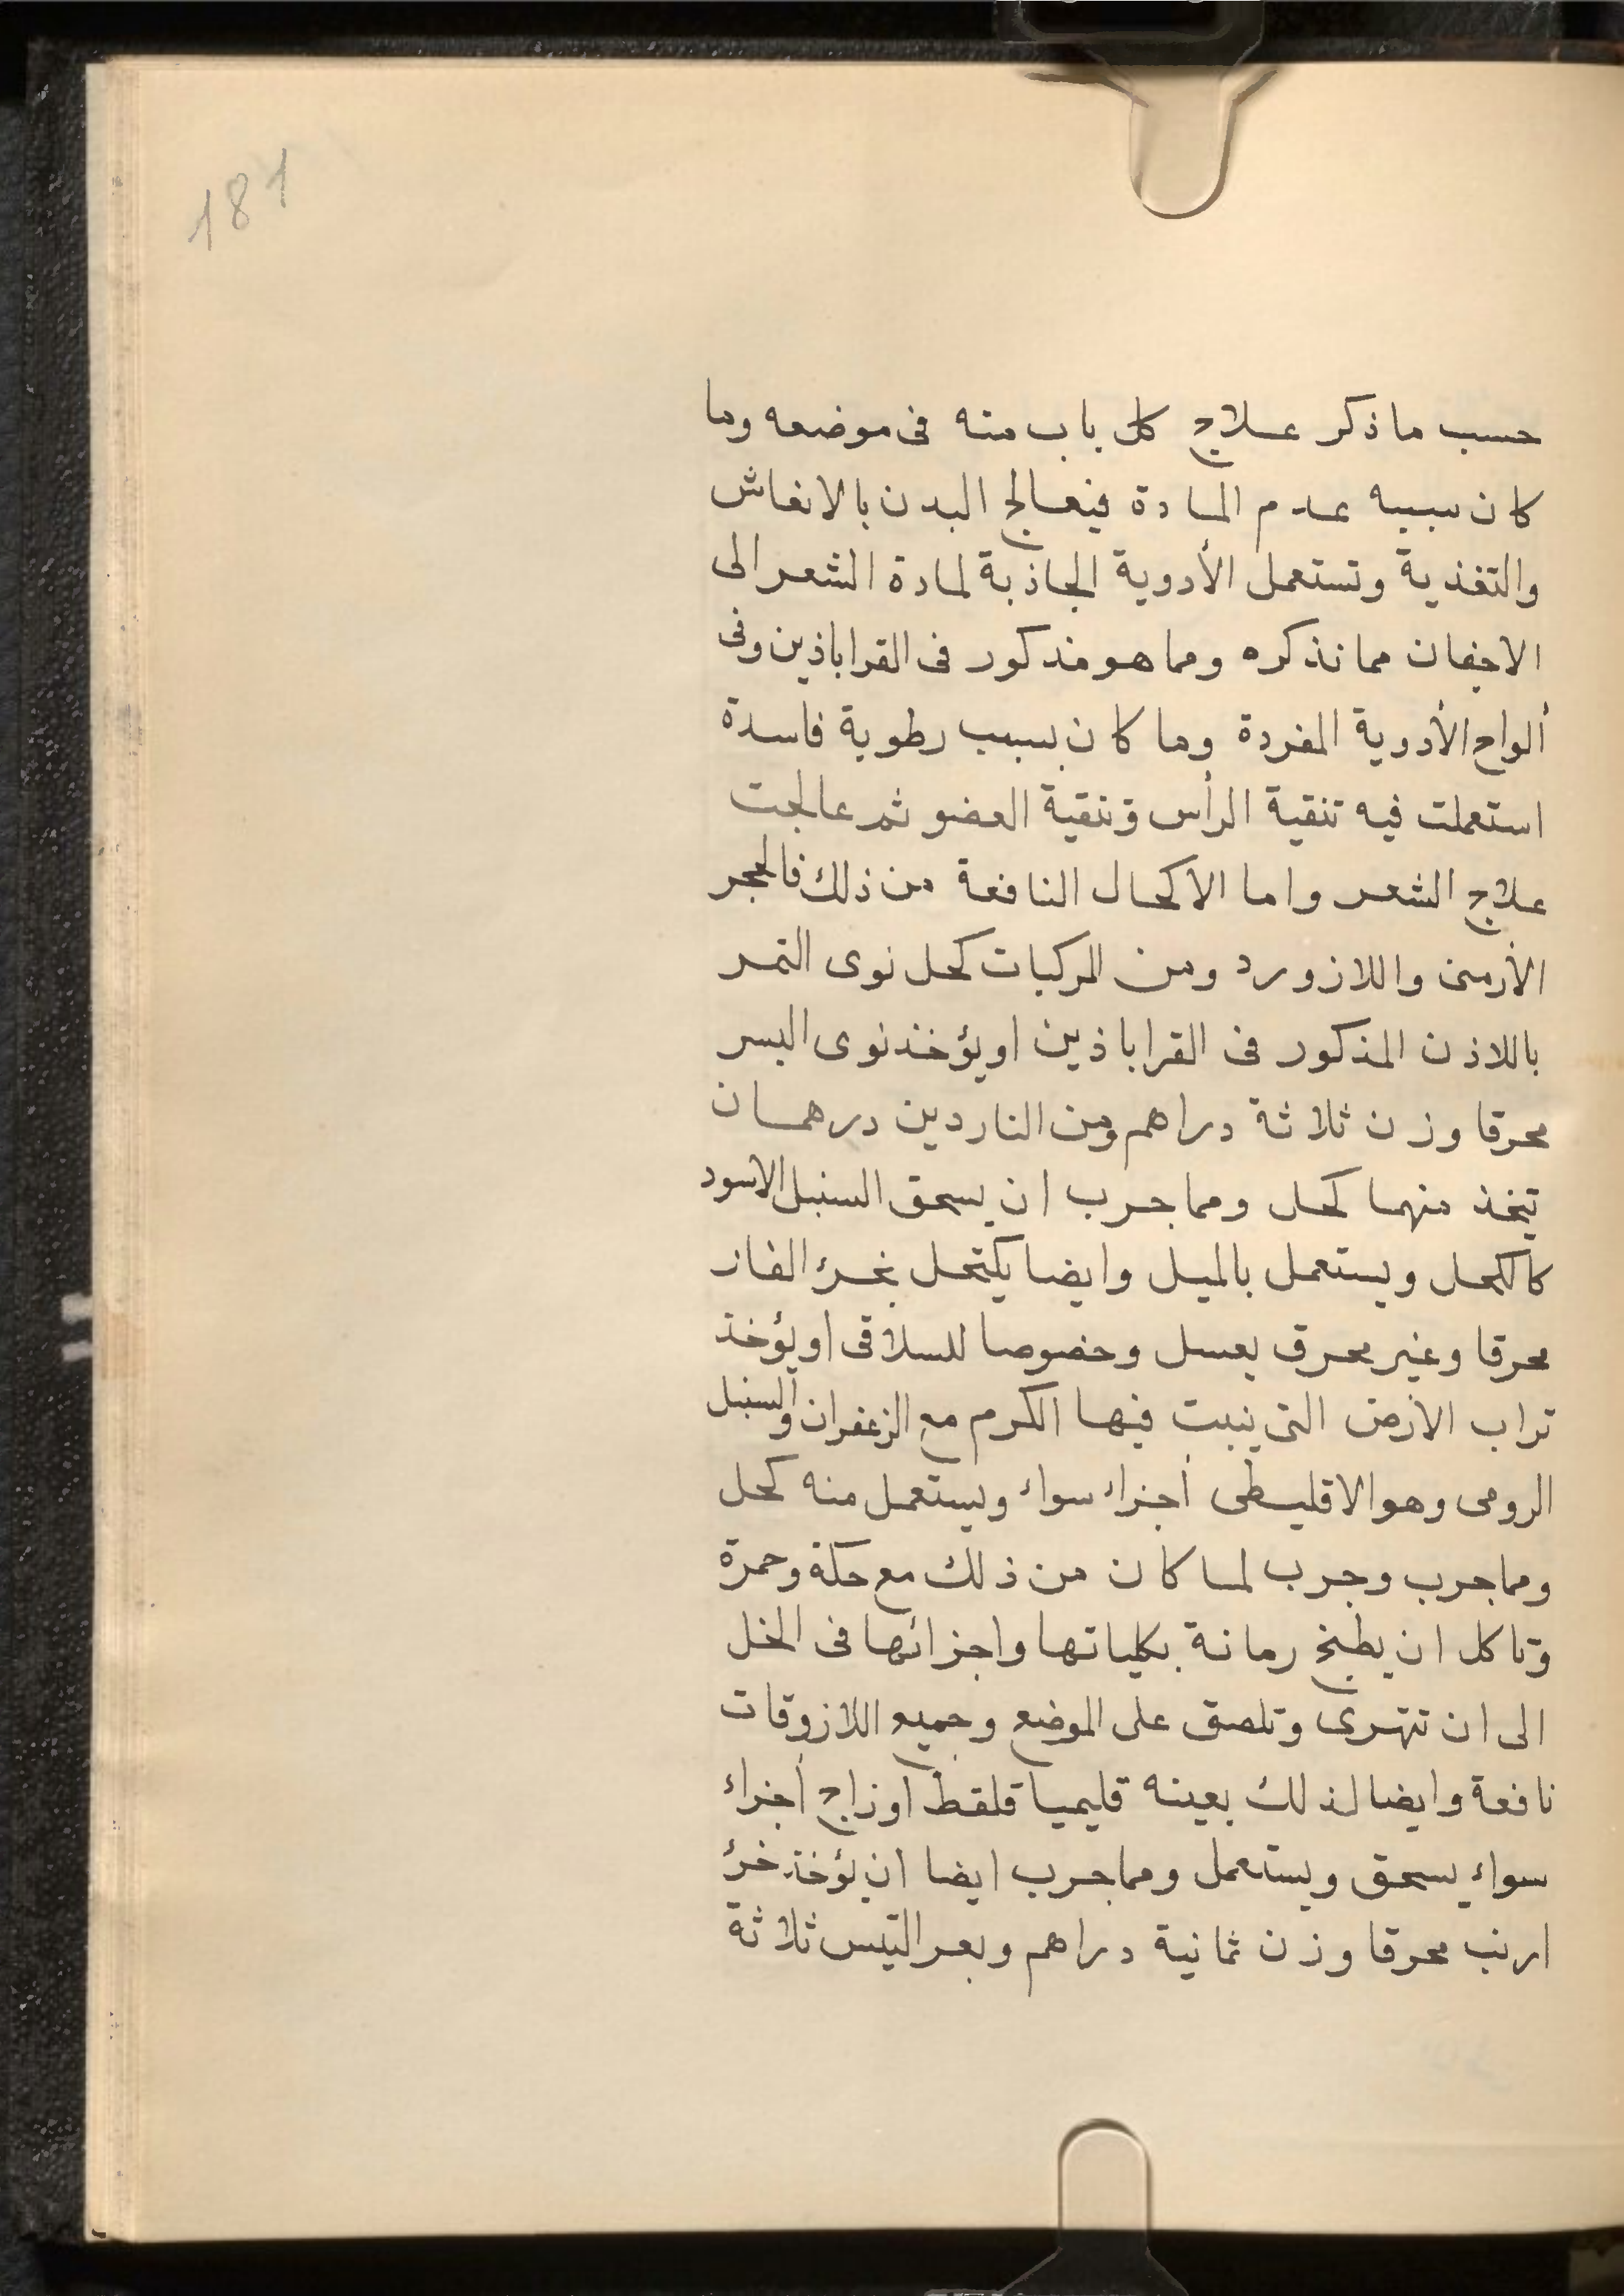 181
حسب ما ذكر علاج كل باب منه فى موضعه وما
كان سببه عدم المادة فيعالج البدن بالانعاش
والتغذية وتستعمل الأدوية الجاذبة لمادة الشعر الى
الاجفان مما نذكره ومما هو مذكور فى القراباذين وفى
ألواح الأدوية المفردة وما كان بسبب رطوبة فاسدة
استعملت فيه تنقية الرأس وتنقية العضو ثم عالجت
علاج الشعر واما الاكحال النافعة من ذلك فالحجر
الأرمنى واللازورد ومن المركبات كحل نوى التمر
باللاذن المذكور فى القراباذين او يؤخذ نوى البسر
محرقا وزن ثلاثة دراهم ومن الناردين درهمان
تيخذ منهما كحل ومما جرب ان يسحق السنبل الاسود
كالكحل ويستعمل بالميل وايضا يكتحل بخرء الفار
محرقا وغير محرق بعسل وخصوصا للسلاقى او يؤخذ
تراب الارض التى ينبت فيها الكرم مع الزعفران والسنبل
الرومى وهو الاقليطى أجزاء سواء ويستعمل منه كحل
ومما جرب وجرب لما كان من ذلك مع حكة وحمرة
وتاكل ان يطبخ رمانة بكلياتها واجزائها فى الخل
الى ان تتهرى وتلصق على الموضع وجميع اللازوقات
نافعة وايضا لذلك بعينه قليميا قلقط اوزاج أجزاء
سواء يسحق ويستعمل ومما جرب ايضا ان يؤخذ خرء
ارنب محرقا وزن ثمانية دراهم وبعر التيس ثلاثة